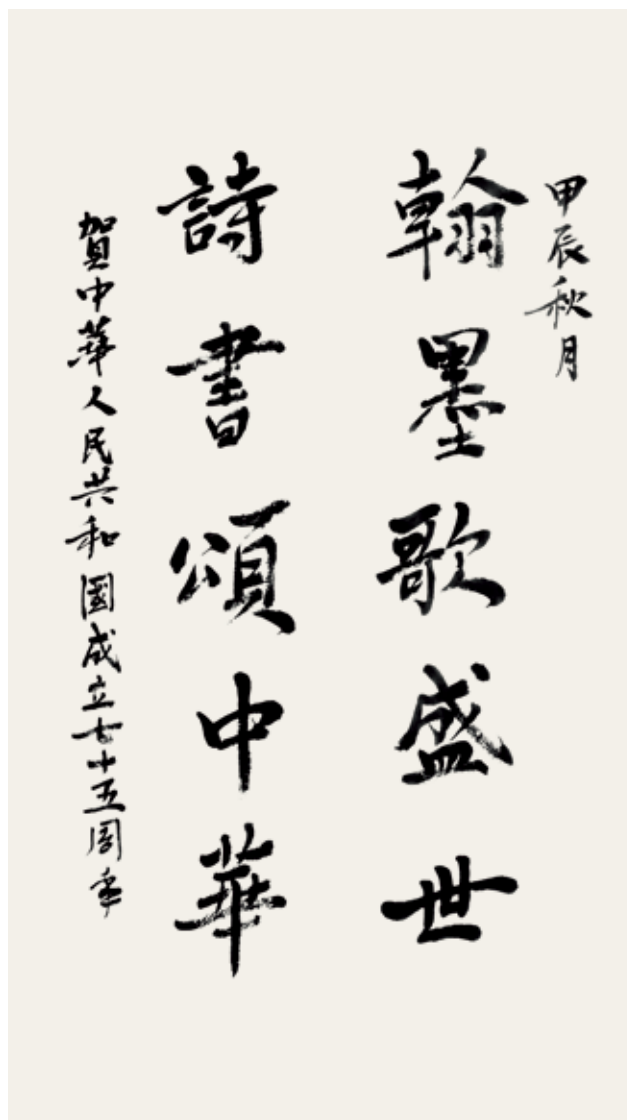 甲辰秋月
翰墨歌盛世
詩書頌中華
賀中華人民共和國成立七十五周年